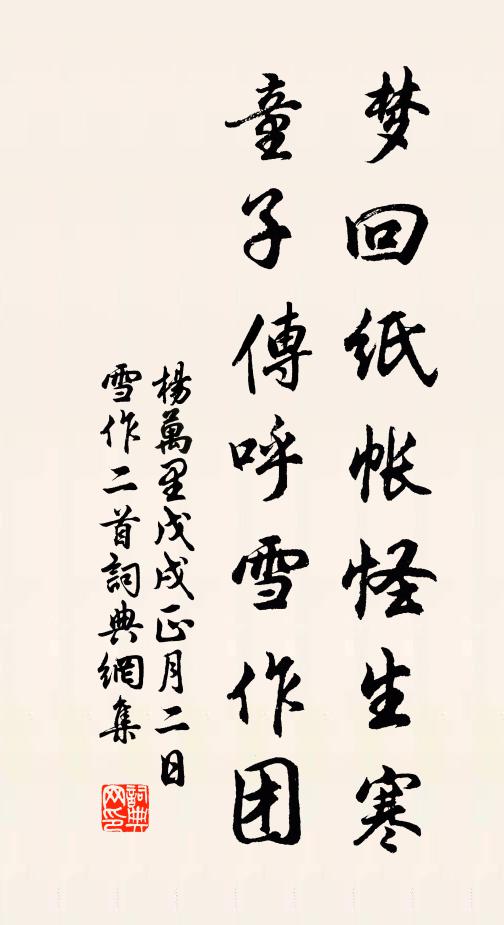 梦回纸帐怪生寒
童子傳呼雪作团
楊萬里戊戌正月二日
雪作二首詞典網集
詞典
网印